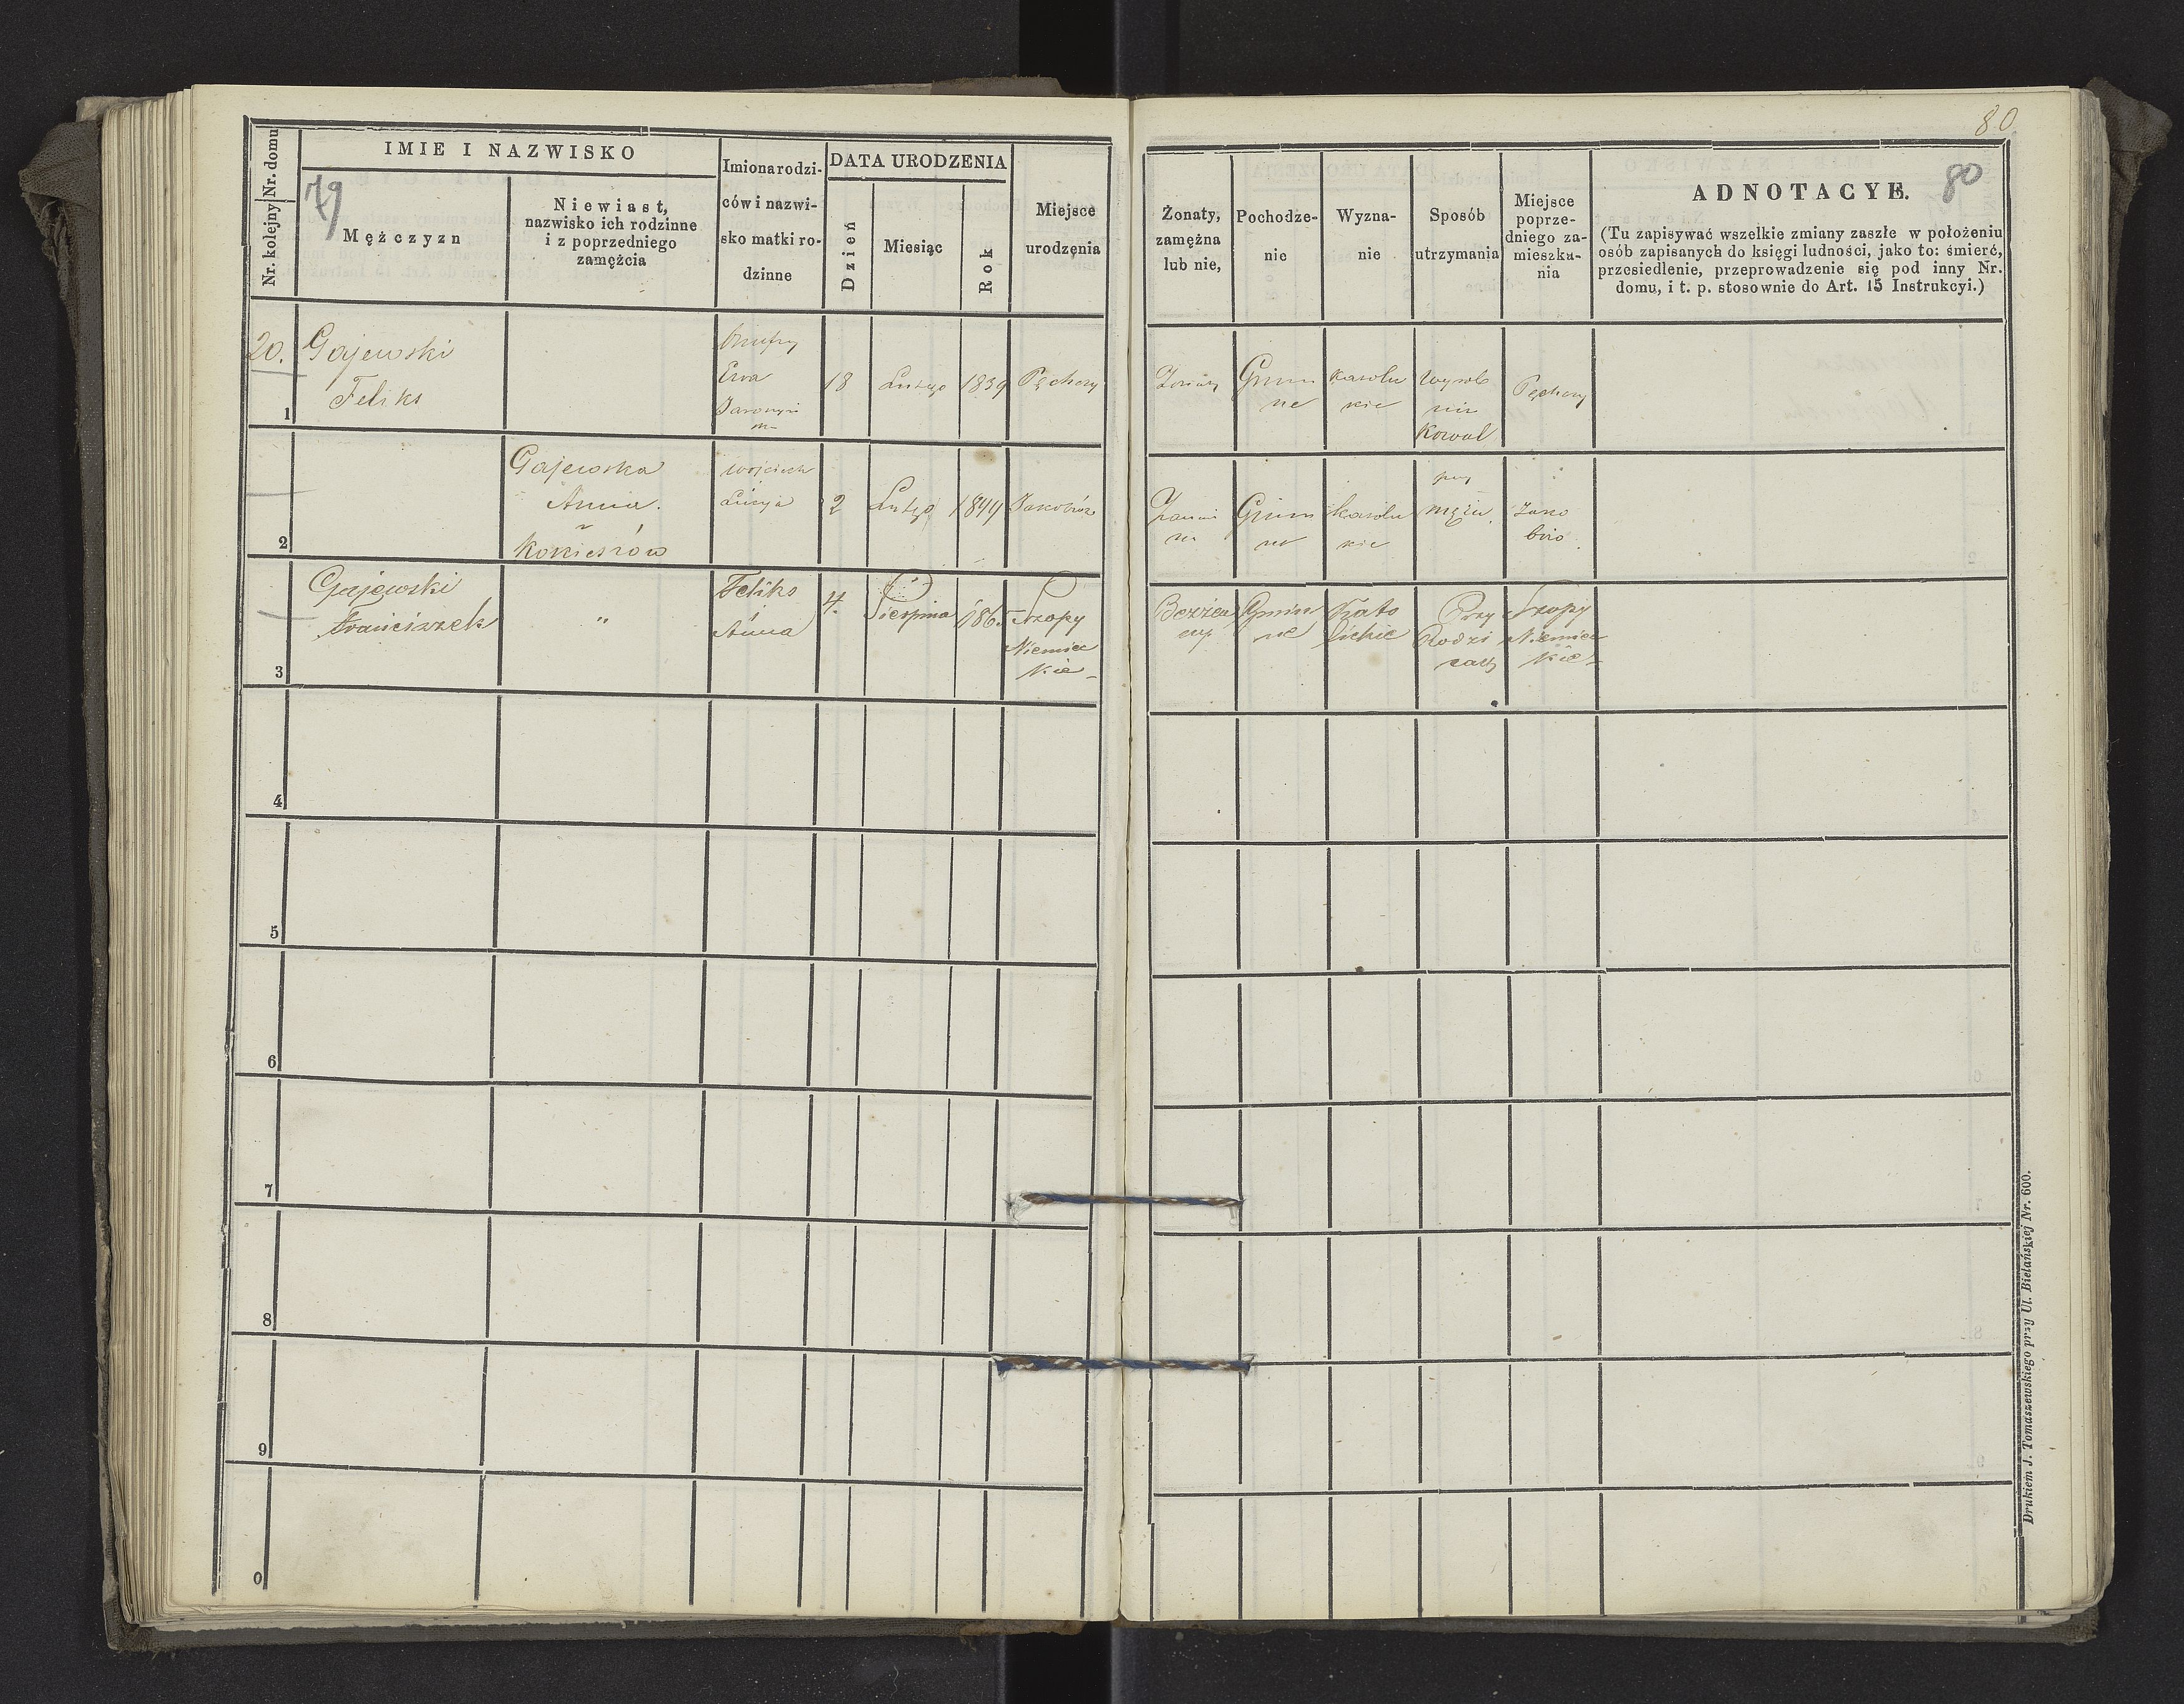 80
79
80
Nr. domu
Nr. kolejny
IMIE I NAZWISKO
Mężczyzn
Niewiast,
nazwisko ich rodzinne
i z poprzedniego
zamężcia
Imiona rodzi-
ców i nazwi-
sko matki ro-
dzinne
DATA URODZENIA
Dzień
Miesiąc
Rok
Miejsce
urodzęnia
Żonaty,
zamężna
lub nie,
Pochodze-
nie
Wyzna-
nie
Sposób
utrzymania
Miejsce
poprze-
dniego za-
mieszka-
nia
ADNOTACYE.
(Tu zapisywać wszelkie zmiany zaszłe w położeniu
osób zapisanych do księgi ludności, jako to: śmierć,
przesiedlenie, przeprowadzenie się pod inny Nr.
domu, i t. p. stosownie do Art. 15 Instrukcyi.)
20.
1
Gajewski
Feliks
Ewa
18
Lutego
1839
Pęchery
Żonaty
Gmin
ne
katolic
kie
wyrob
nik
Kowal
Pęchery
2
Gajewska
Anna.
z
Wojciech
Łucya
2
Lutego
Gmin
ne
katolic
kie
przy
mężu.
3
Gajewski
Franciszek
"
Feliks
i
Anna
4.
Sierpnia
186
Szopy
Niemiec
kie
Bezżen
ny
Gmin
ne
Kato
lickie
Przy
Rodzi
cach
Szopy
Niemiec
kie
4
5
6
7
8
9
0
Drukiem J. Tomaszewskiego przy Ul. Bielańskiej Nr. 600.